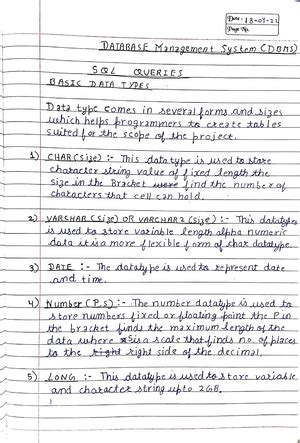 Date: 18-04-22
Page No.
DATABASE Management System (DBMS)
SQL QUERIES
BASIC DATA TYPES
Data type comes in several forms and sizes
which helps programmers to create tables
suited for the scope of the project.
1) CHAR(Size) :- This datatype is used to store
character string value of fixed length the
size in the Bracket were find the number of
chatacters that cell can hold.
2) VARCHAR (Size) OR VARCHAR2 (Size) :- This datatype
is used to store variable length alpha numeric
data it is a more flexible form of char datatype.
3) DATE :- The datatype is used to represent date
and time.
4) Number (P,S) :- The number datatype is used to
store numbers fixed or floating point the P in
the bracket finds the maximum length of the
data where S is a scale that finds no. of places
to the right right side of the decimal.
5) LONG :- This datatype is used to store variable
and character string upto 2GB.